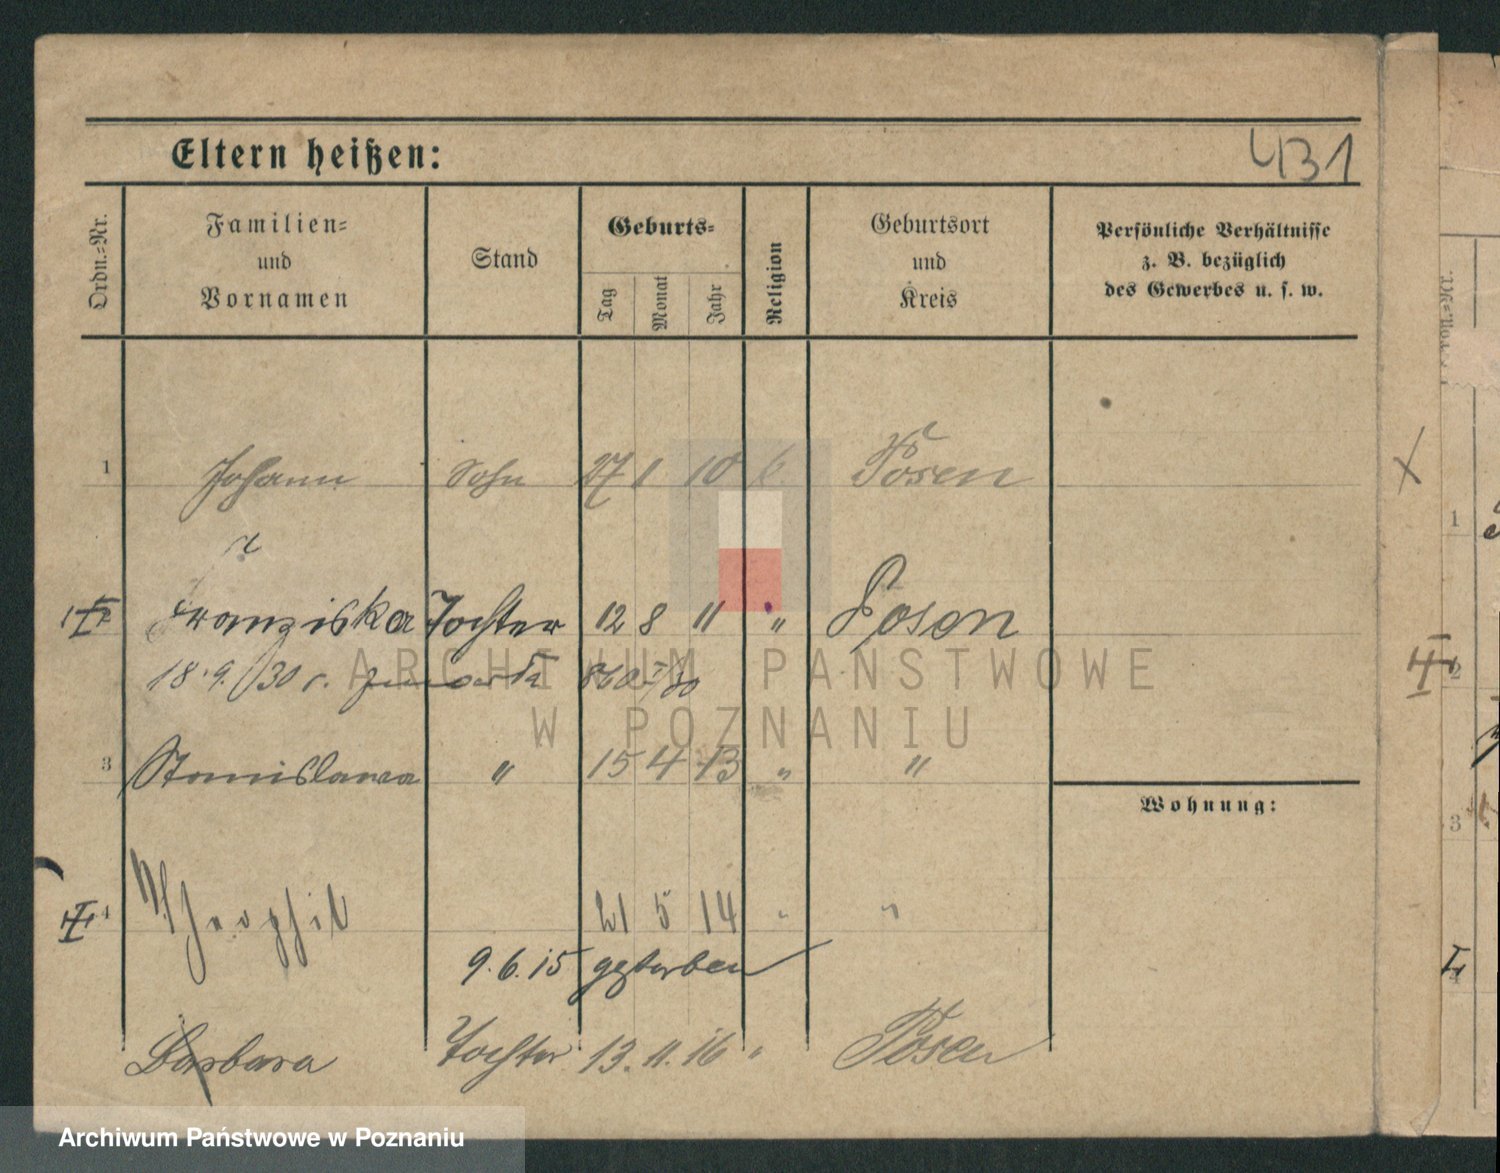 431
Eltern heißen:
Ordn.=Nr. Familien= und Vornamen Stand Geburts= Tag Monat Jahr Religion Geburtsort und Kreis Persönliche Verhältnisse z. B. bezüglich des Gewerbes u. s. w.
1 Johann Sohn 27 1 10 k. Posen
2 Franziska Tochter 12 8 11 " Posen
18.9./30
3 Stanislawa " 15 4 13 " "
Wohnung:
4 Theophil 21 5 14 " "
9.6.15 gestorben
Barbara Tochter 13. 11. 16 " Posen
1
2
3
ARCHIWUM PAŃSTWOWE
W POZNANIU
Archiwum Państwowe w Poznaniu